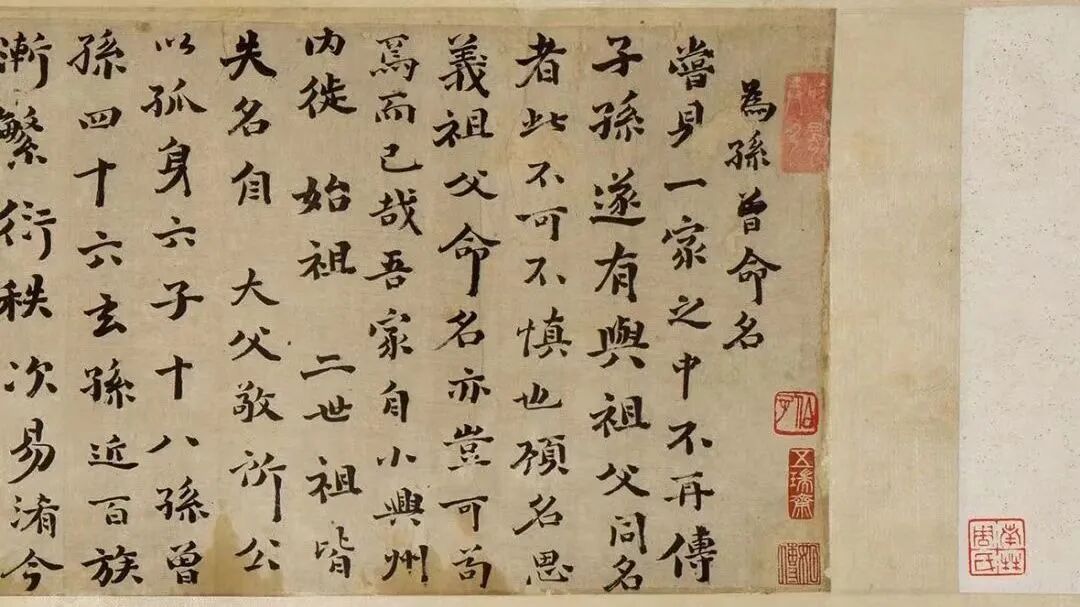 為孫曾命名
嘗見一家之中不再傳
子孫遂有與祖父同名
者此不可不慎也顧名思
義祖父命名亦豈可苟
焉而已哉吾家自小興州
内徙 始祖 二世祖皆
失名自 大父敬所公
以孤身六子十八孫曾
孫四十六玄孫近百族
漸繁衍秩次易淆今
五瑞齋